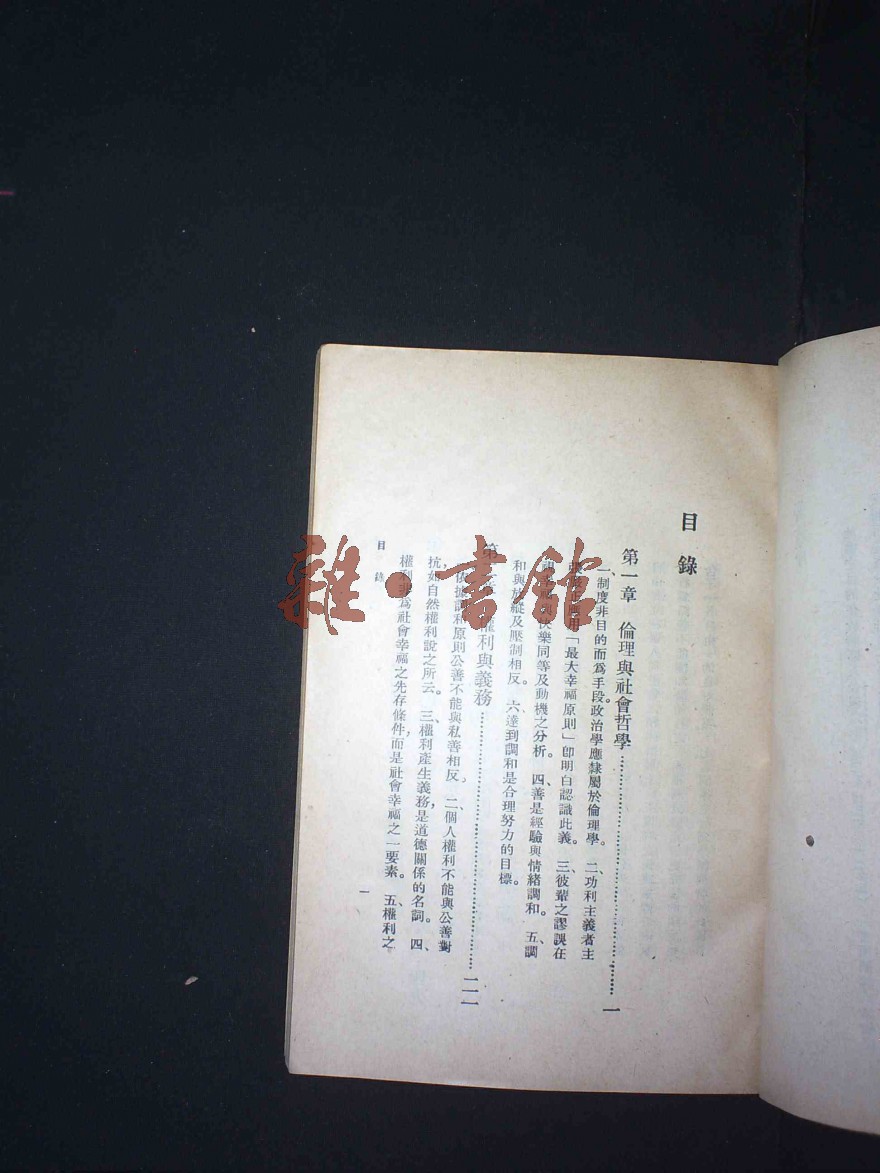 目錄
第一章 倫理與社會哲學……一
一、制度非目的而爲手段政治學應隸屬於倫理學。 二、功利主義者主
用「最大幸福原則」卽明白認識此義。 三、彼輩之謬誤在
快樂同等及動機之分析。 四、善是經驗與情緒調和。 五、調
和與放縱及壓制相反。 六、達到調和是合理努力的目標。
第 權利與義務……二一
原則公善不能與私善相反。 二、個人權利不能與公善對
抗如自然權利說之所云。 三、權利產生義務,是道德關係的名詞。 四、
權利非爲社會幸福之先存條件,而是社會幸福之一要素。 五、權利之
目錄
一
雜·書館